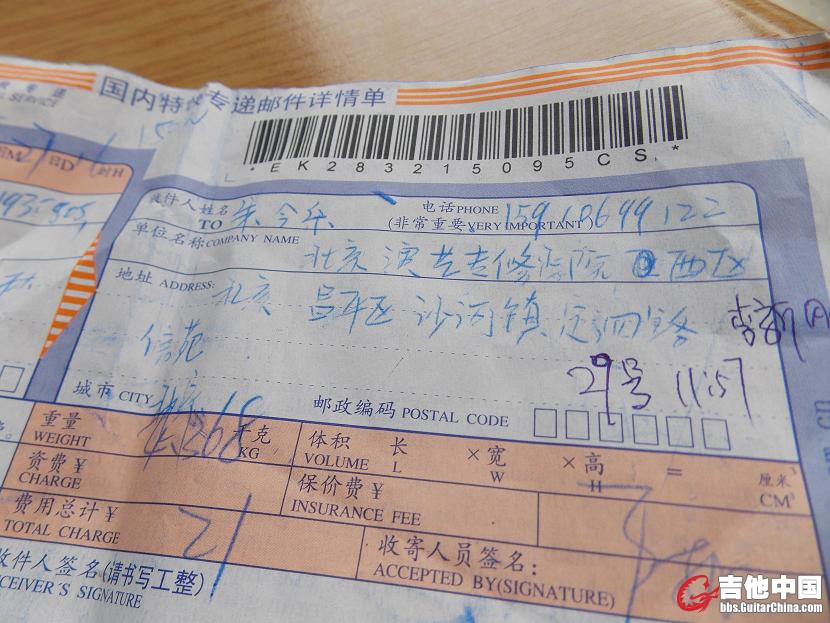 国内特快专递邮件详情单
SERVICE
*EK283215095CS*
收件人姓名
TO
电话PHONE
(非常重要VERY IMPORTANT)
单位名称COMPANY NAME
北京演艺专修学院 西区
地址 ADDRESS:
北京 昌平区 沙河镇 定泗路
信苑
29号 11:57
城市 CITY
邮政编码 POSTAL CODE
重量
WEIGHT
千克
KG
体积
VOLUME
长
L
×宽
W
×高
H
=
厘米³
CM³
资费¥
CHARGE
保价费¥
INSURANCE FEE
费用总计¥
TOTAL CHARGE
21
收寄人员签名:
ACCEPTED BY(SIGNATURE)
收件人签名(请书写工整)
RECEIVER'S SIGNATURE
吉他中国
bbs.GuitarChina.com